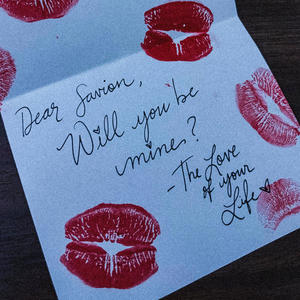 Dear Savion,
Will you be
mine?
-The Love
of your
Life